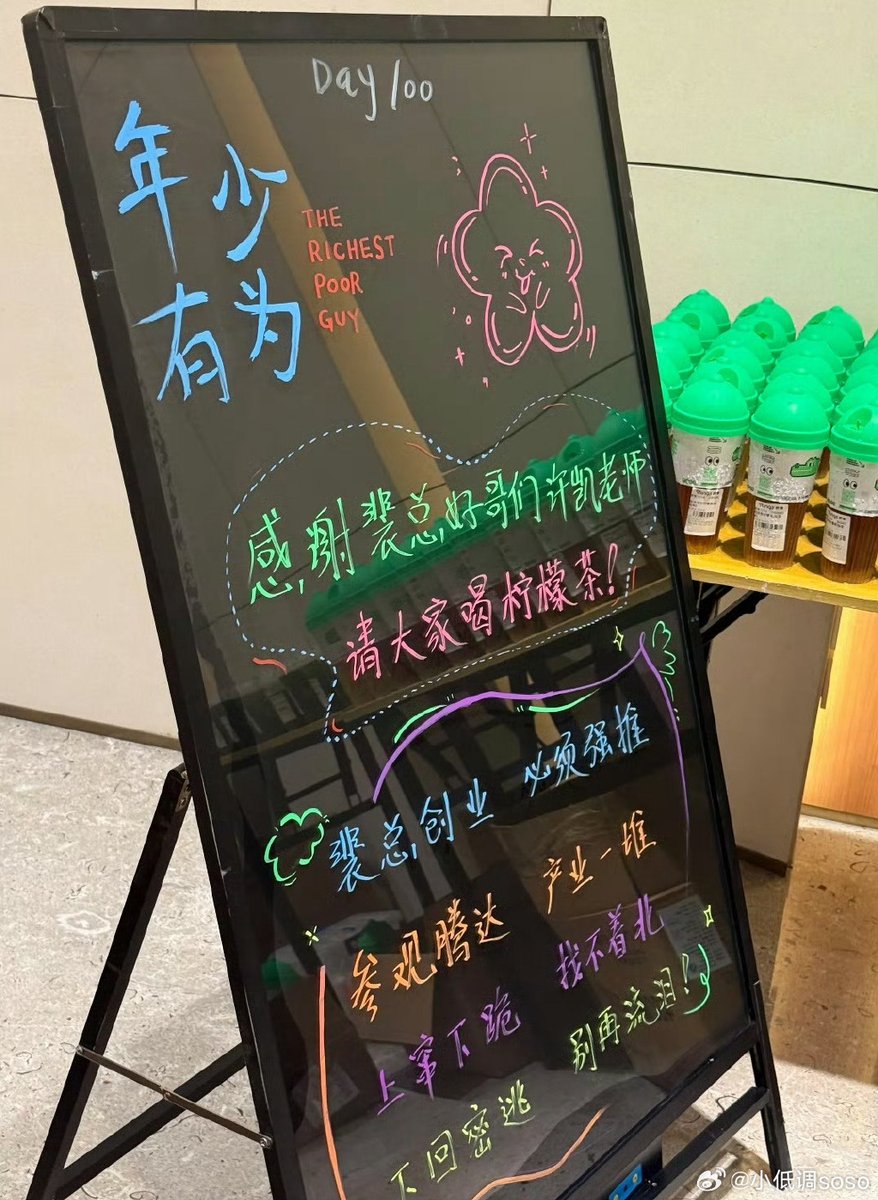 Day 100
年少
有为
THE
RICHEST
POOR
GUY
感谢裴总好哥们许凯老师
请大家喝柠檬茶!
裴总创业 必须强推
参观腾达 产业一堆
上窜下跪 找不着北
下回密逃 别再流泪!
@小低调soso